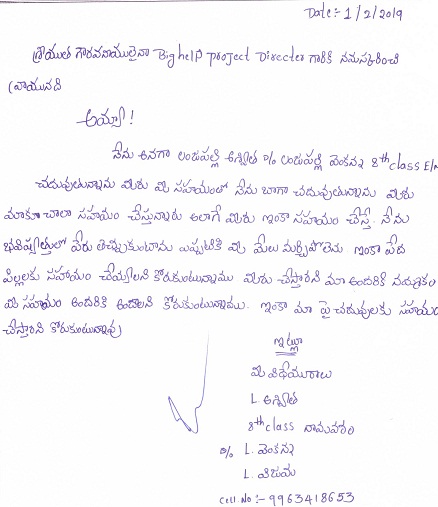 Date:- 1/2/2019
శ్రీయుత గౌరవనీయులైన Big help project Directer గారికి నమస్కరించి
వ్రాయునది
అయ్యా!
నేను అనగా లండుపల్లి అశ్విత D/o లండుపల్లి వెంకన్న 8th class E/M
చదువుతున్నాను మీరు మీ సహయంతో నేను బాగా చదువుతున్నాను మీరు
మాకు చాలా సహయం చేస్తున్నారు అలాగే మీరు ఇంకా సహయం చేస్తే. నేను
భవిష్యత్తులో పేరు తెచ్చుకుంటాను ఎప్పటికీ మీ మేలు మర్చిపోలెను ఇంకా పేద
పిల్లలకు సహాయం చేయ్యాలని కోరుకుంటున్నాము మీరు చేస్తారని మా అందరికి నమ్మకం
మీ సహయం అందరికి ఉండాలని కోరుకుంటున్నాము. ఇంకా మా పై చదువులకు సహయం
చేస్తారని కోరుకుంటున్నాను
ఇట్లు
మీ విధేయురాలు
L. అశ్విత
8th class నామవరం
D/o L. వెంకన్న
L. విజయ
Cell. No :- 9963418653